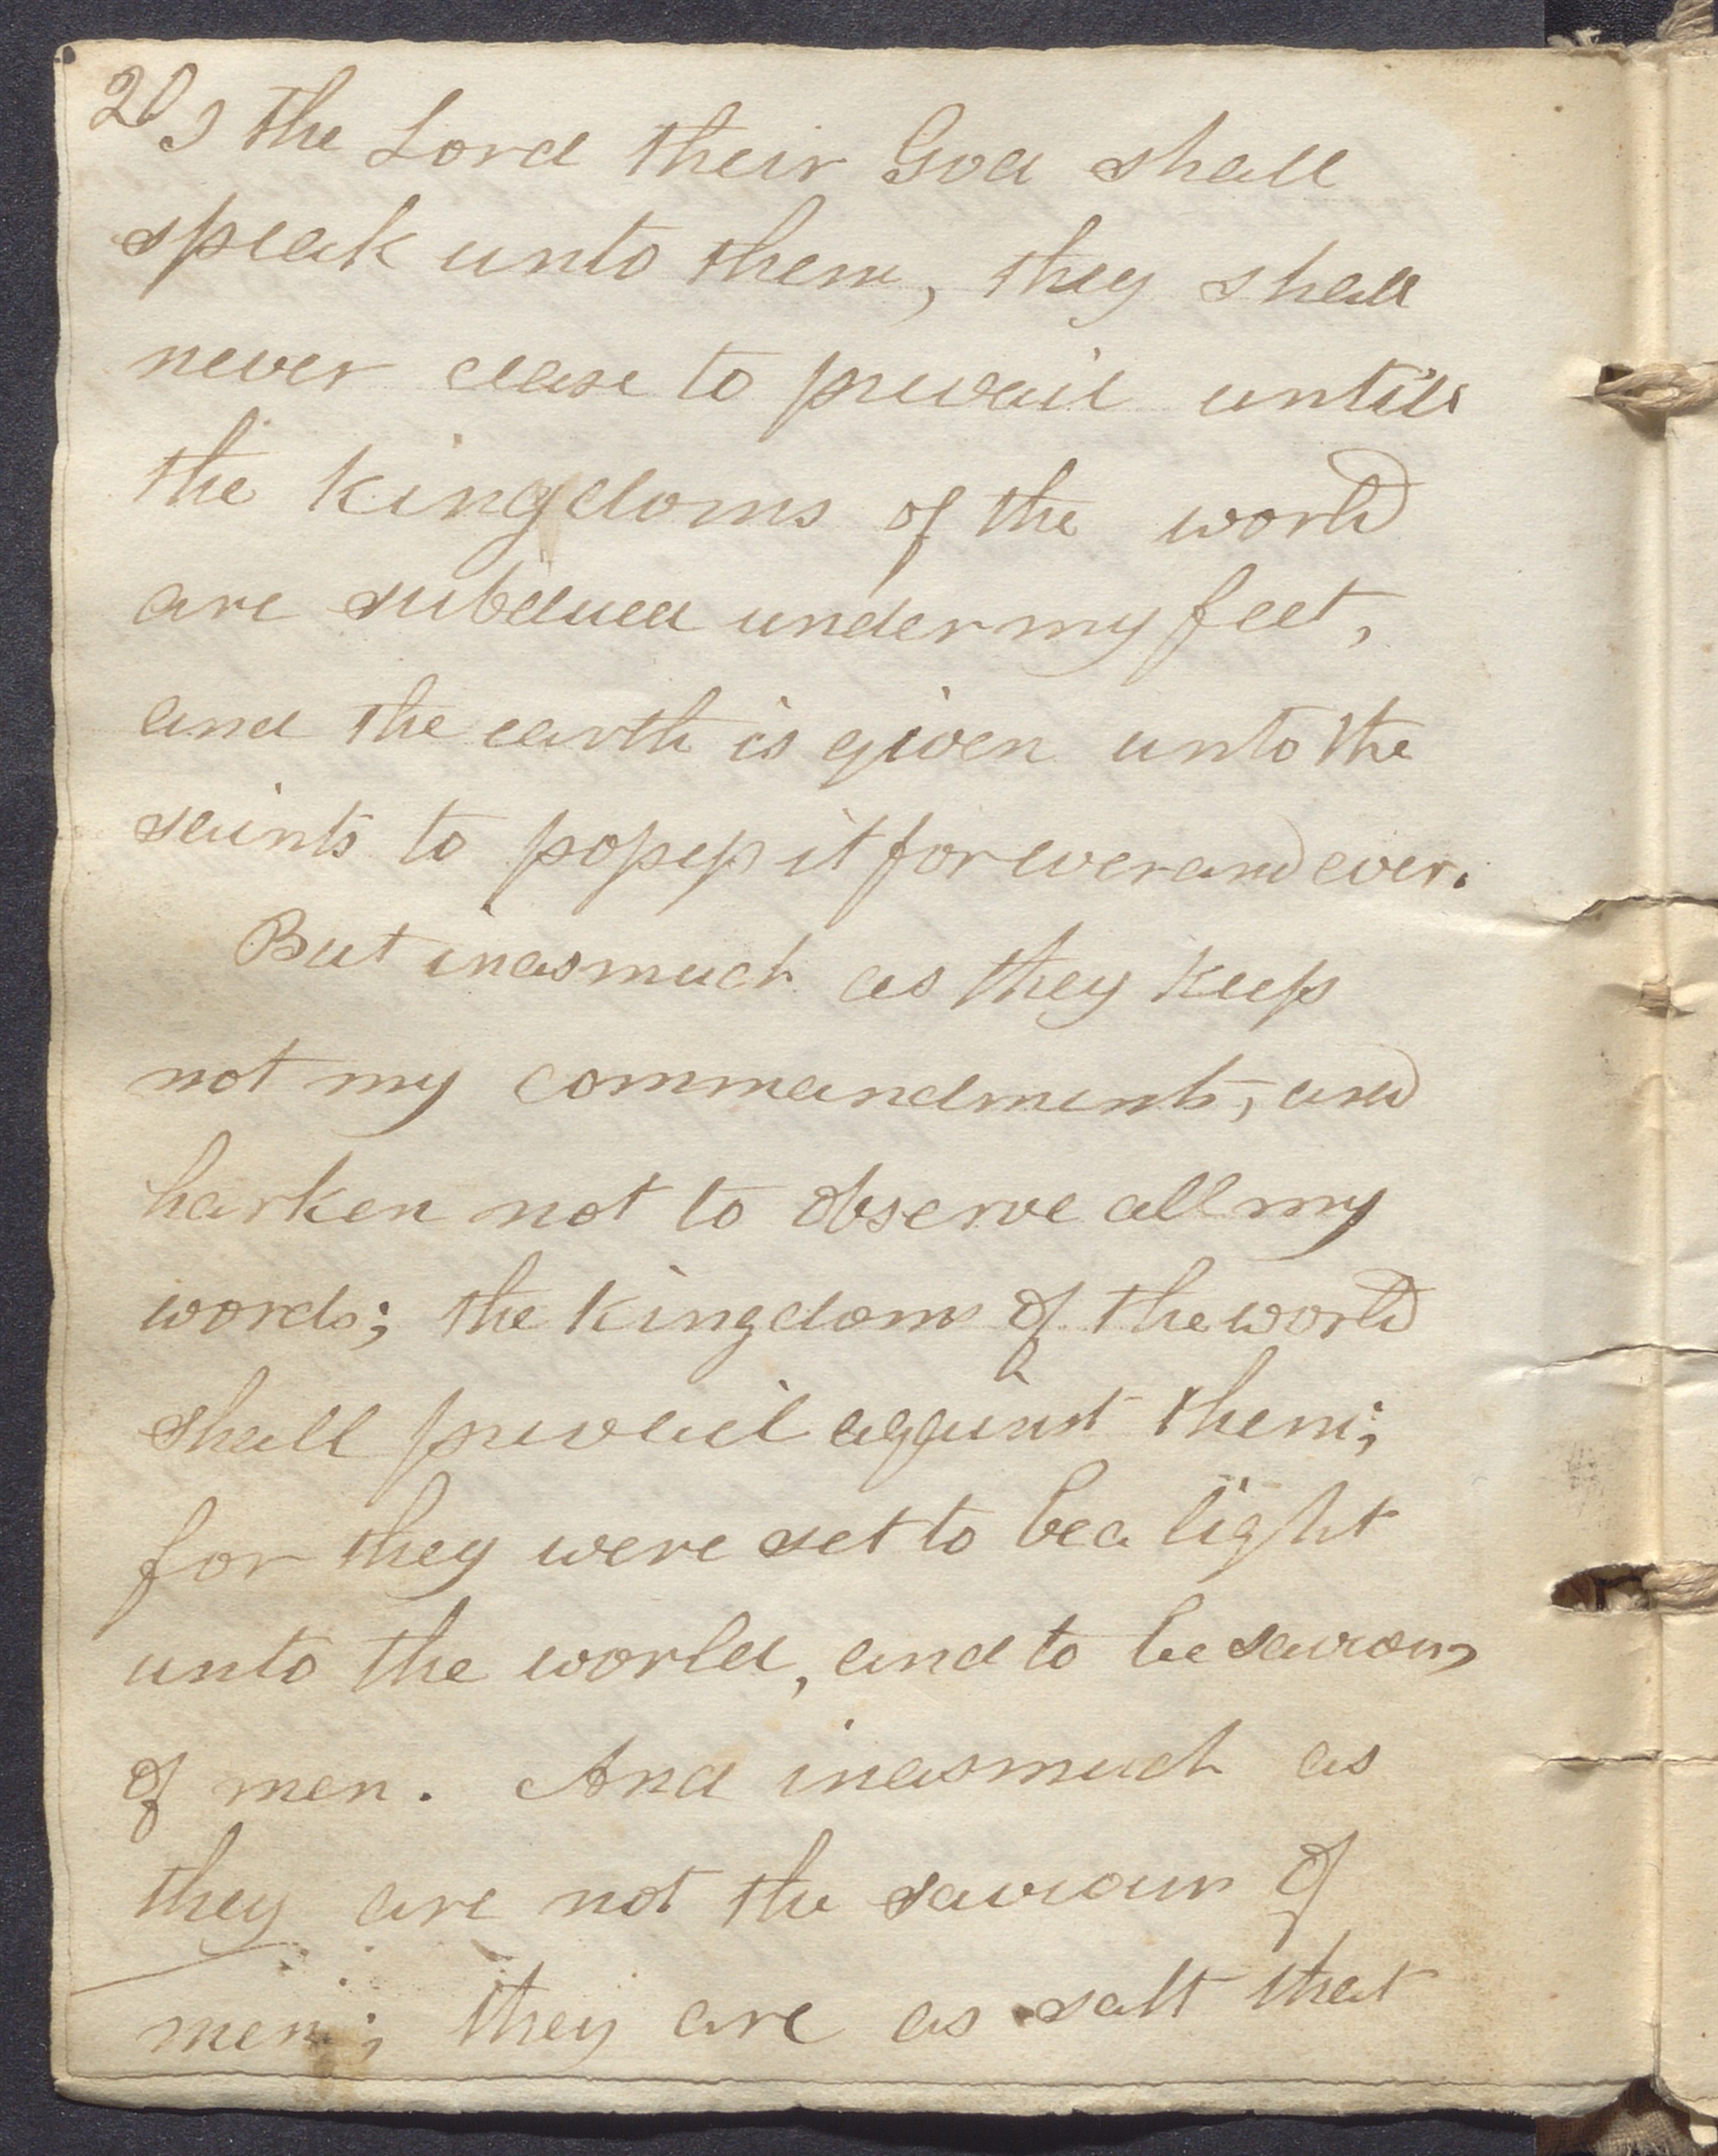 20
I the Lord their God shall
speak unto them, they shall
never cease to prevail untill
the kingdoms of the world
are subdued under my feet,
and the earth is given unto the
saints to possess it for ever and ever.
But inasmuch as they keep
not my commandments, and
harken not to observe all my
words; the kingdoms of the world
shall prevail against them;
for they were set to be a light
unto the world, and to be saviours
of men. And inasmuch as
they are not the saviours of
men; they are as salt that